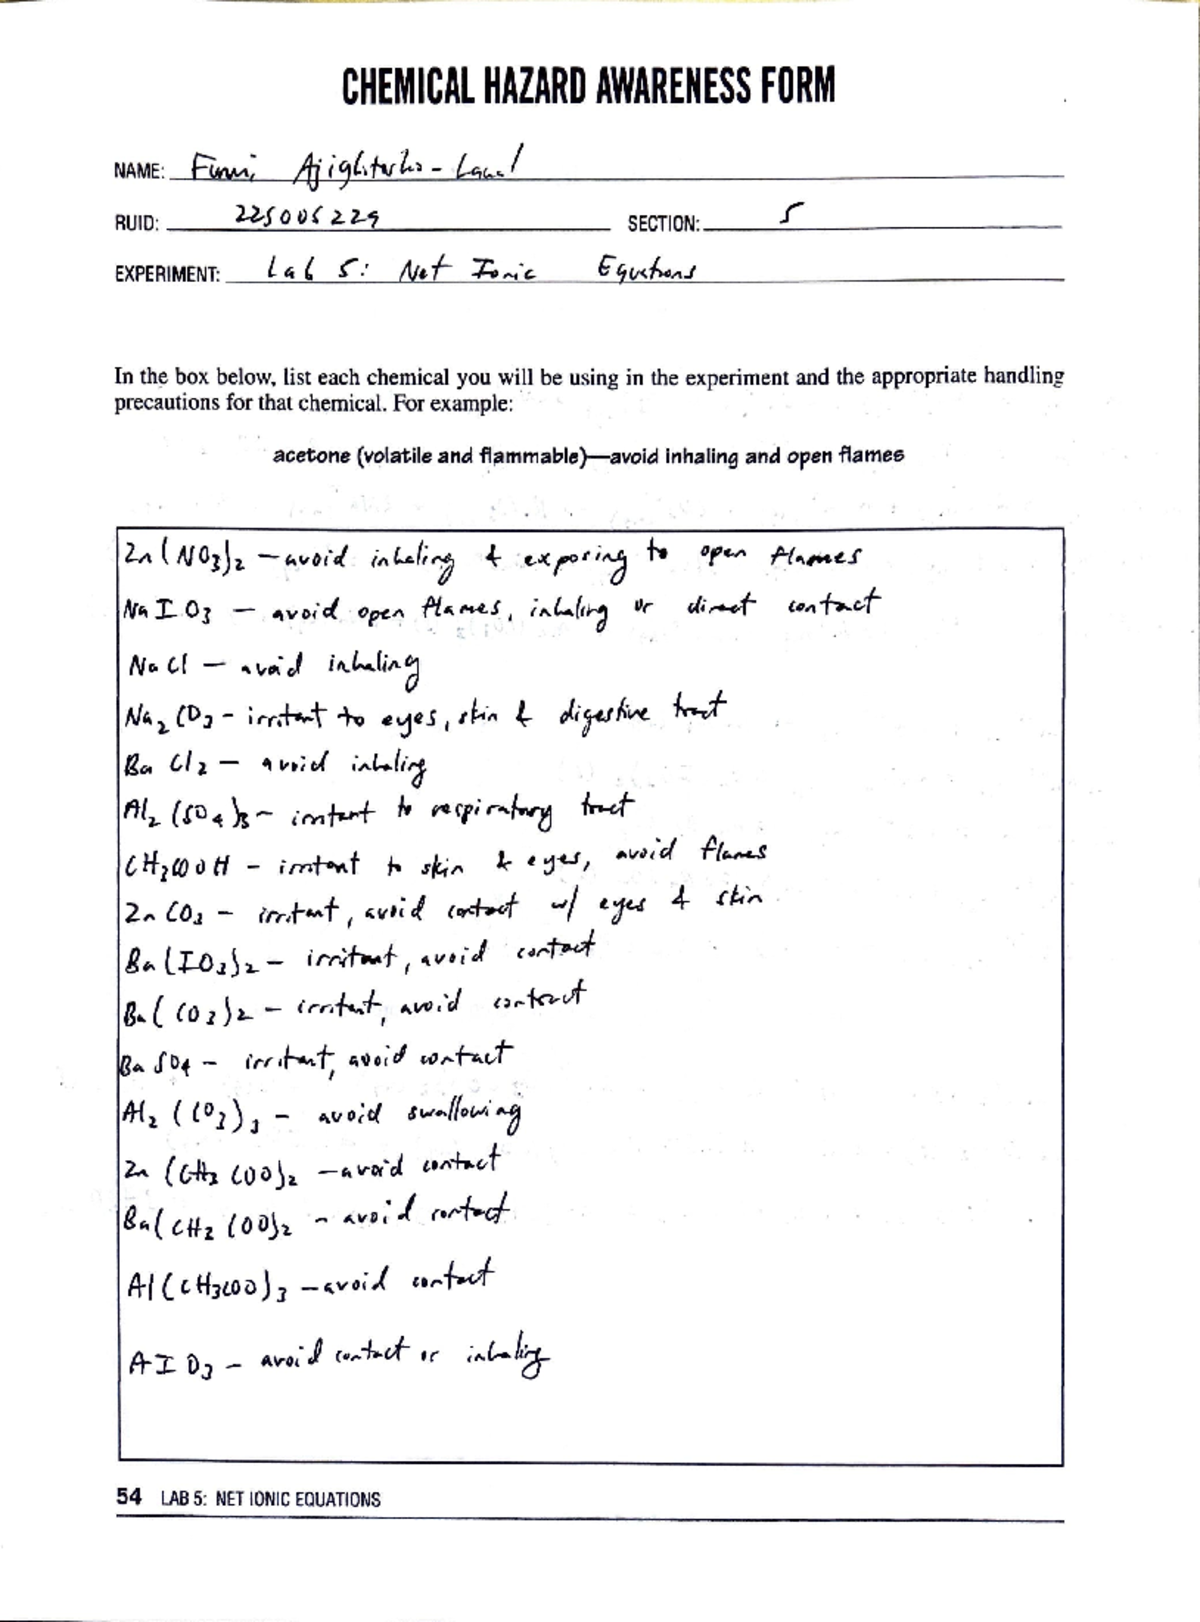 CHEMICAL HAZARD AWARENESS FORM
NAME:
RUID: 225005229 SECTION: 5
EXPERIMENT: Lab 5: Net Ionic Equations
In the box below, list each chemical you will be using in the experiment and the appropriate handling
precautions for that chemical. For example:
acetone (volatile and flammable)—avoid inhaling and open flames
Zn(NO3)2 - avoid inhaling & exposing to open flames
NaIO3 - avoid open flames, inhaling or direct contact
NaCl - avoid inhaling
Na2CO3 - irritant to eyes, skin & digestive tract
BaCl2 - avoid inhaling
Al2(SO4)3 - irritant to respiratory tract
CH3COOH - irritant to skin & eyes, avoid flames
ZnCO3 - irritant, avoid contact w/ eyes & skin
Ba(IO3)2 - irritant, avoid contact
Ba(CO3)2 - irritant, avoid contact
BaSO4 - irritant, avoid contact
Al2(CO3)3 - avoid swallowing
Zn(CH3COO)2 - avoid contact
Ba(CH2COO)2 - avoid contact
Al(CH3COO)3 - avoid contact
AIO3 - avoid contact or inhaling
54 LAB 5: NET IONIC EQUATIONS